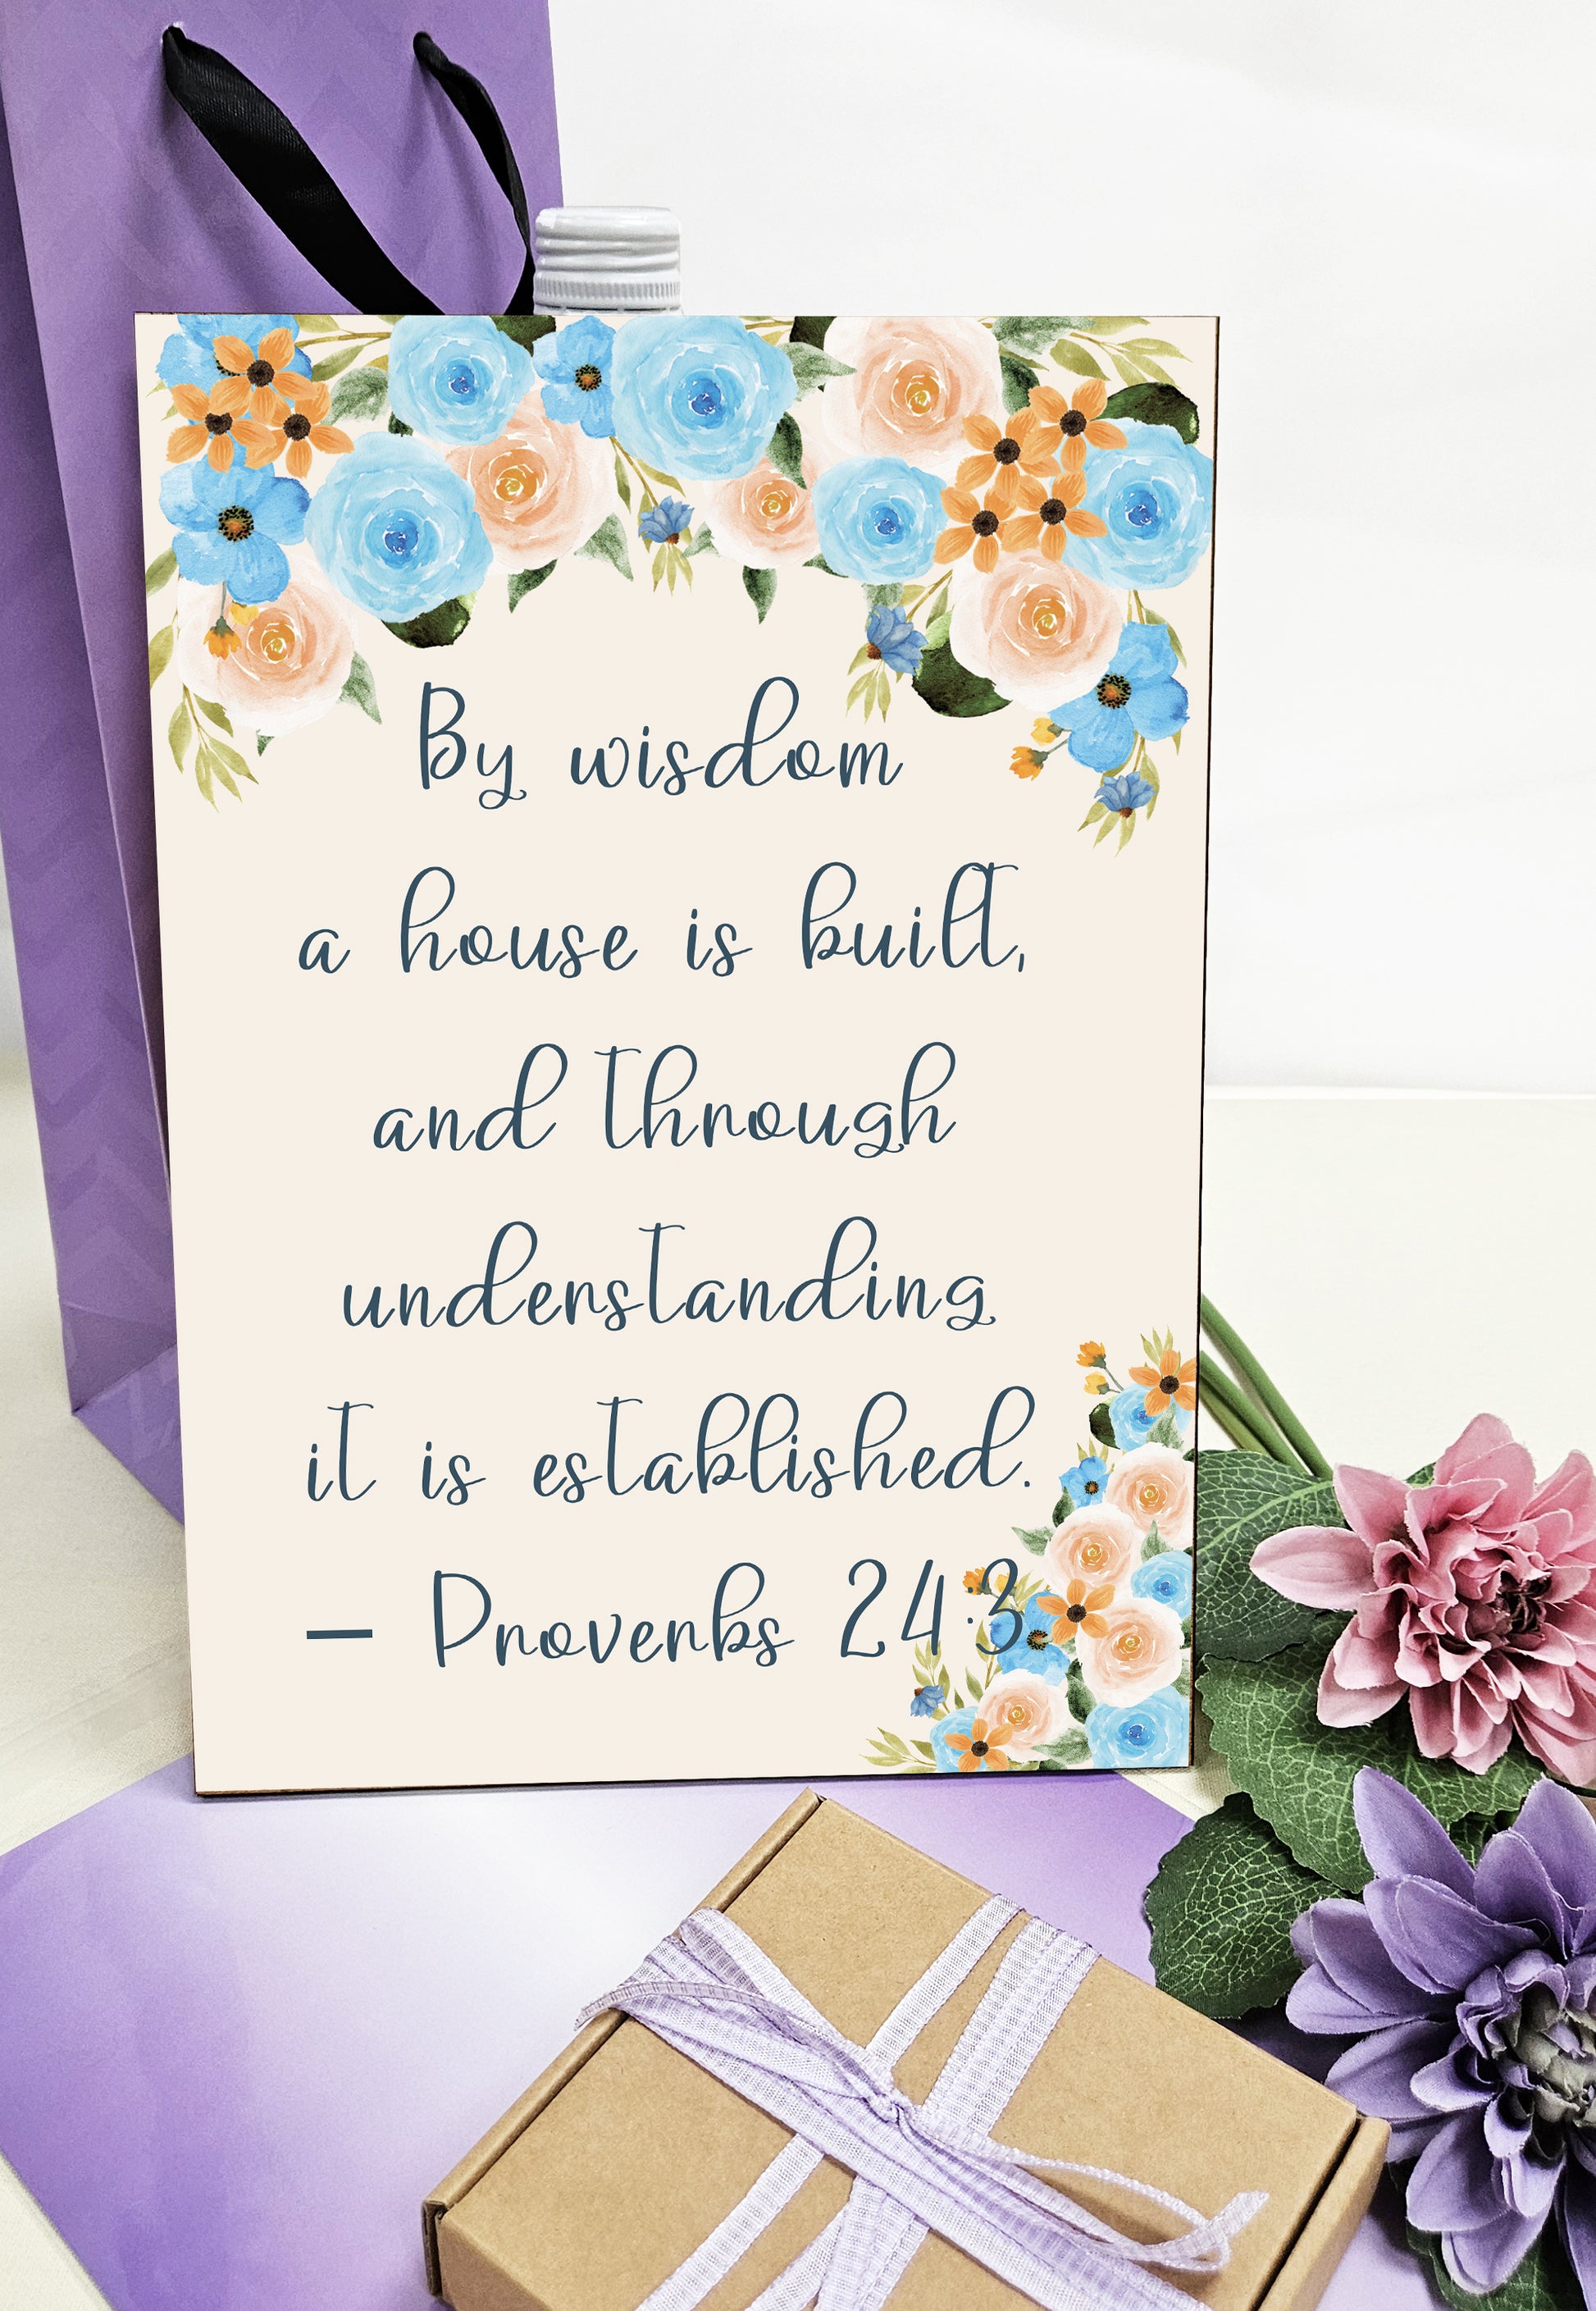 By wisdom
a house is built,
and through
understanding
it is established.
– Proverbs 24:3